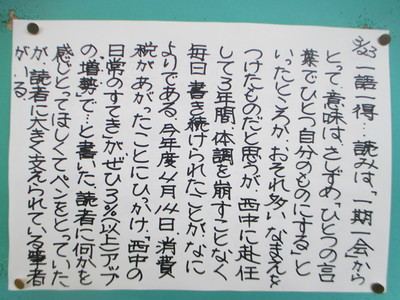 3/23 一語一得…読みは、「一期一会」から
とって、意味は、さずめ「ひとつの言
葉でひとつ自分のものにする」と
いったところが、おそれ多いなまえを
つけたものだと思うが、西中に赴任
して3年間、体調を崩すことなく
毎日書き続けられたことが、なに
よりである。今年度、4月14日、消費
税があがったことにひっかけ、「西中の
日常のすてきがぜひ3%以上アップ
の増勢で…と書いた。読者に何かを
感じとってほしくてペンをとっていた
が、読者に大きく支えられている筆者
がいる。